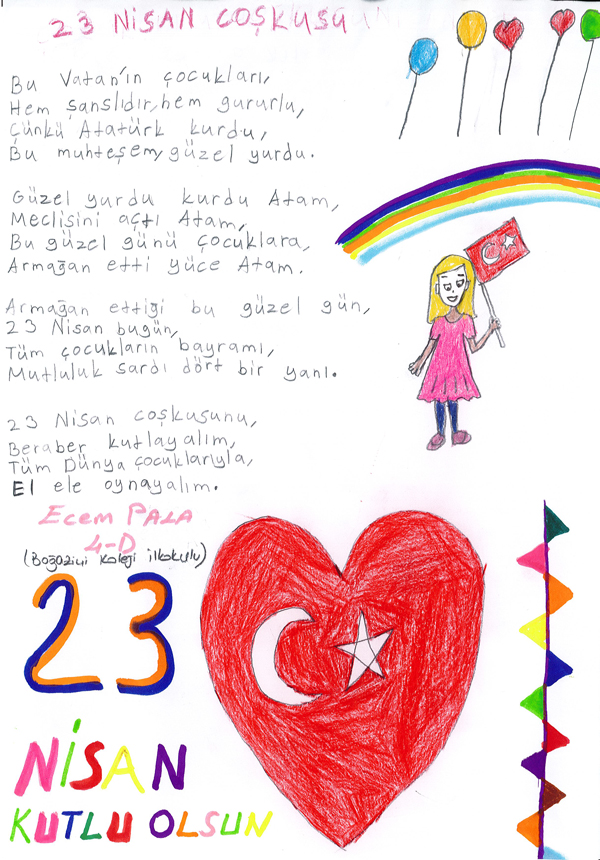 23 NİSAN COŞKUSU
Bu Vatan'ın çocukları,
Hem şanslıdır, hem gururlu,
Çünkü Atatürk kurdu,
Bu muhteşem, güzel yurdu.
Güzel yurdu kurdu Atam,
Meclisini açtı Atam,
Bu güzel günü çocuklara,
Armağan etti yüce Atam.
Armağan ettiği bu güzel gün,
23 Nisan bugün,
Tüm çocukların bayramı,
Mutluluk sardı dört bir yanı.
23 Nisan coşkusunu,
Beraber kutlayalım,
Tüm Dünya çocuklarıyla,
El ele oynayalım.
Ecem PALA
4-D
(Boğaziçi Koleji İlkokulu)
23
NİSAN
KUTLU OLSUN